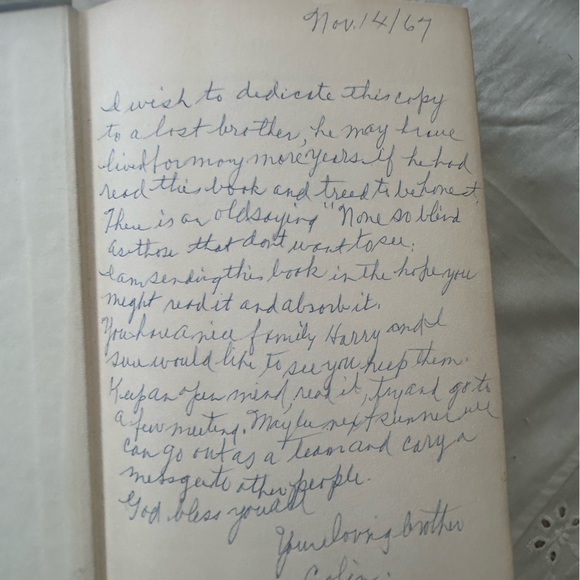 Nov. 14/67
I wish to dedicate this copy
to a lost brother, he may have
lived for many more years if he had
read this book and treed to be honest.
There is an old saying "None so blind
as those that don't want to see.
I am sending this book in the hope you
meght read it and absorb it.
You have a nice family Harry and I
sure would like to see you keep them.
Keep an open mind, read it, try and go to
a few meeting. Maybe next summer we
can go out as a team and cary a
message to other people.
God bless you all
Your loving brother
Colin.